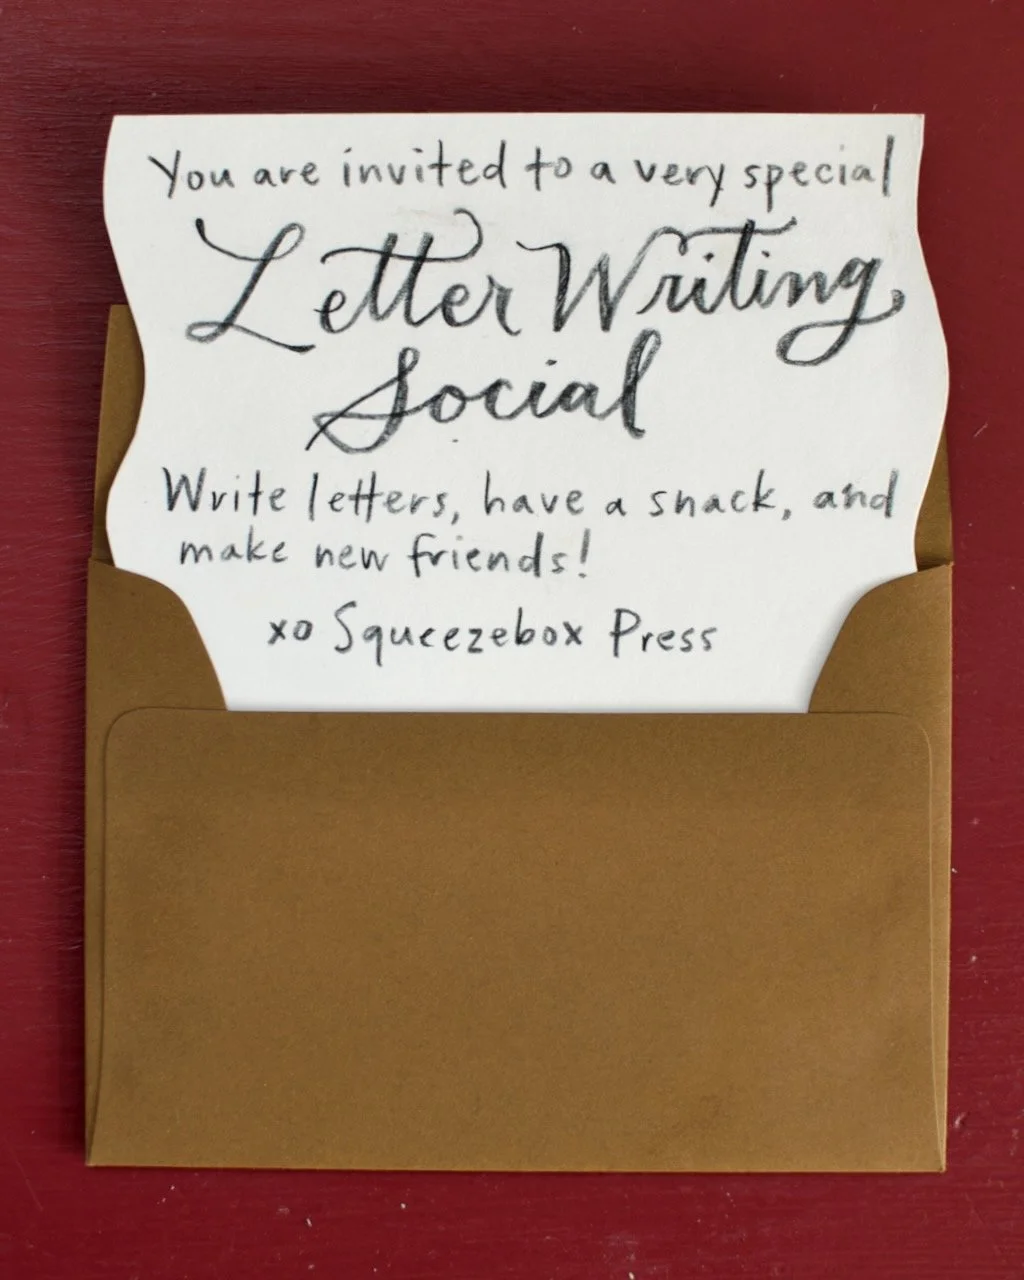 You are invited to a very special
Letter Writing
Social
Write letters, have a snack, and
make new friends!
xo Squeezebox Press